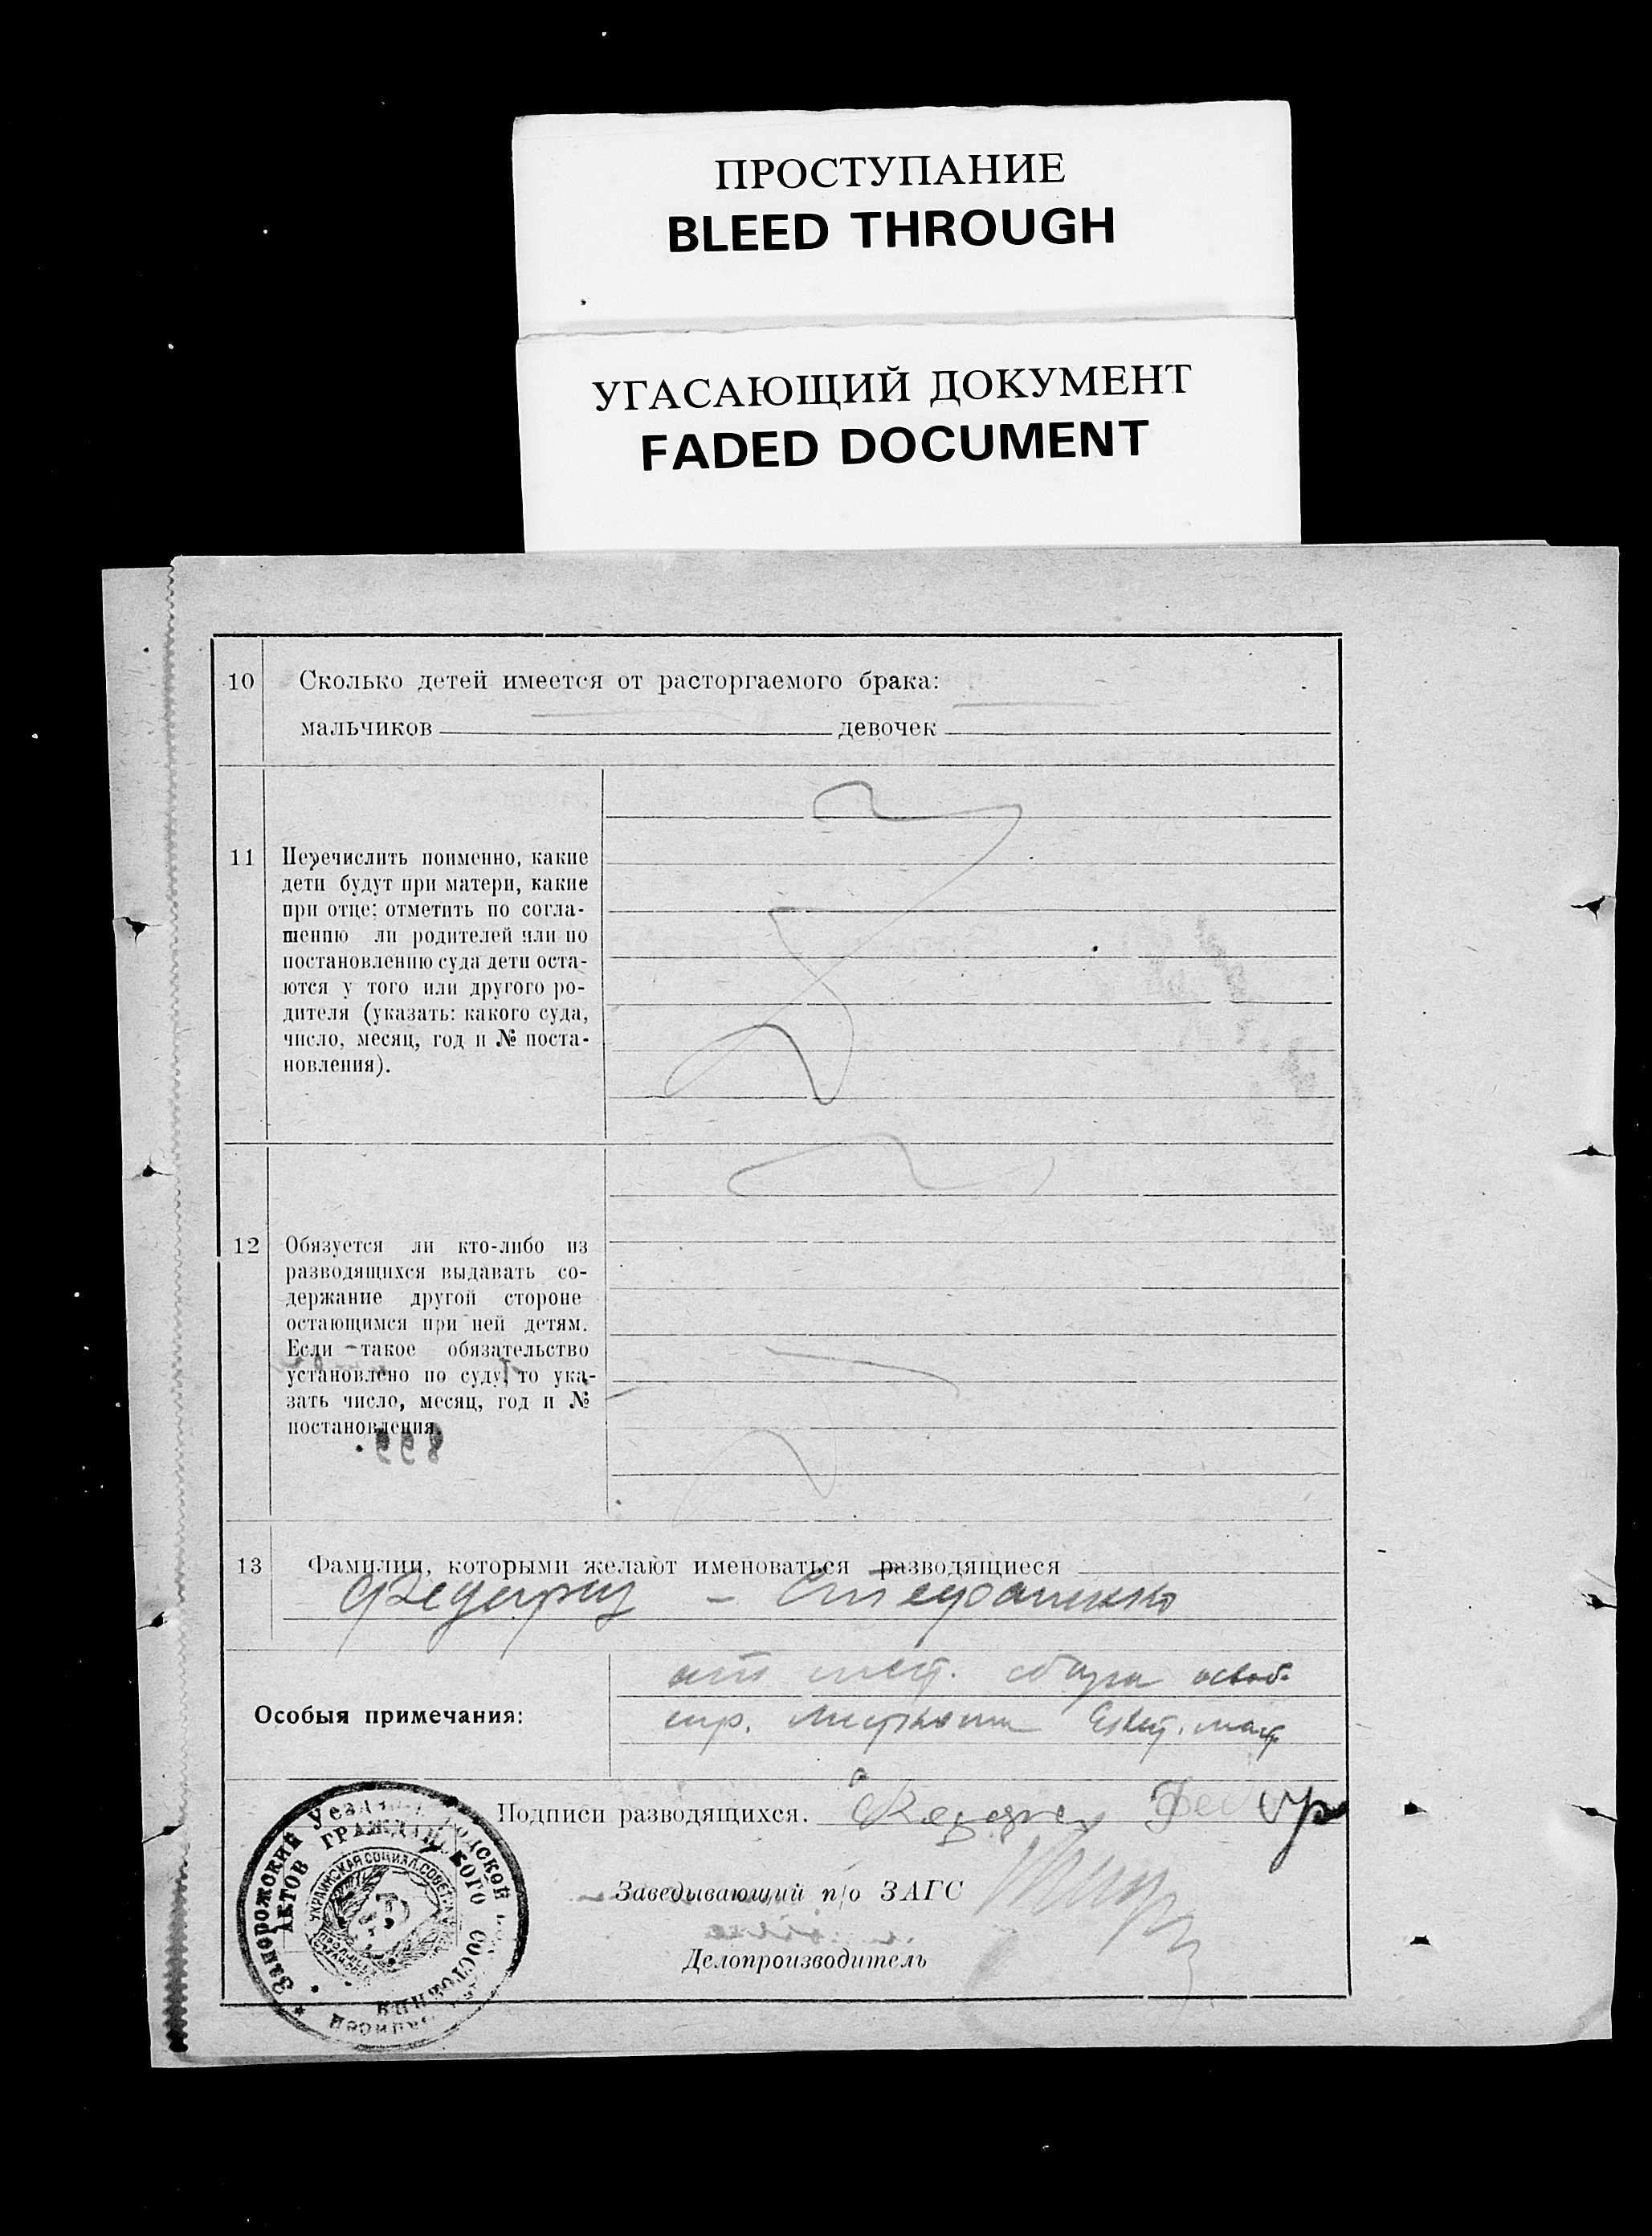 ПРОСТУПАНИЕ
BLEED THROUGH
УГАСАЮЩИЙ ДОКУМЕНТ
FADED DOCUMENT
10 Сколько детей имеется от расторгаемого брака:
мальчиков девочек
11 Перечислить поименно, какие
дети будут при матери, какие
при отце; отметить по согла-
шению ли родителей или по
постановлению суда дети оста-
ются у того или другого ро-
дителя (указать: какого суда,
число, месяц, год и № поста-
новления).
12 Обязуется ли кто-либо из
разводящихся выдавать со-
держание другой стороне
остающимся при ней детям.
Если такое обязательство
установлено по суду, то ука-
зать число, месяц, год и №
постановления.
899
13 Фамилии, которыми желают именоваться разводящиеся
– Степаненко
от сбора освоб.
Особыя примечания:
Подписи разводящихся.
Заведывающий п/о ЗАГС
Делопроизводитель
Запорожский Уезд
АКТОВ ГРАЖДАНСКОГО СОСТОЯНИЯ
УКРАИНСКАЯ СОЦИАЛ. СОВЕТ.